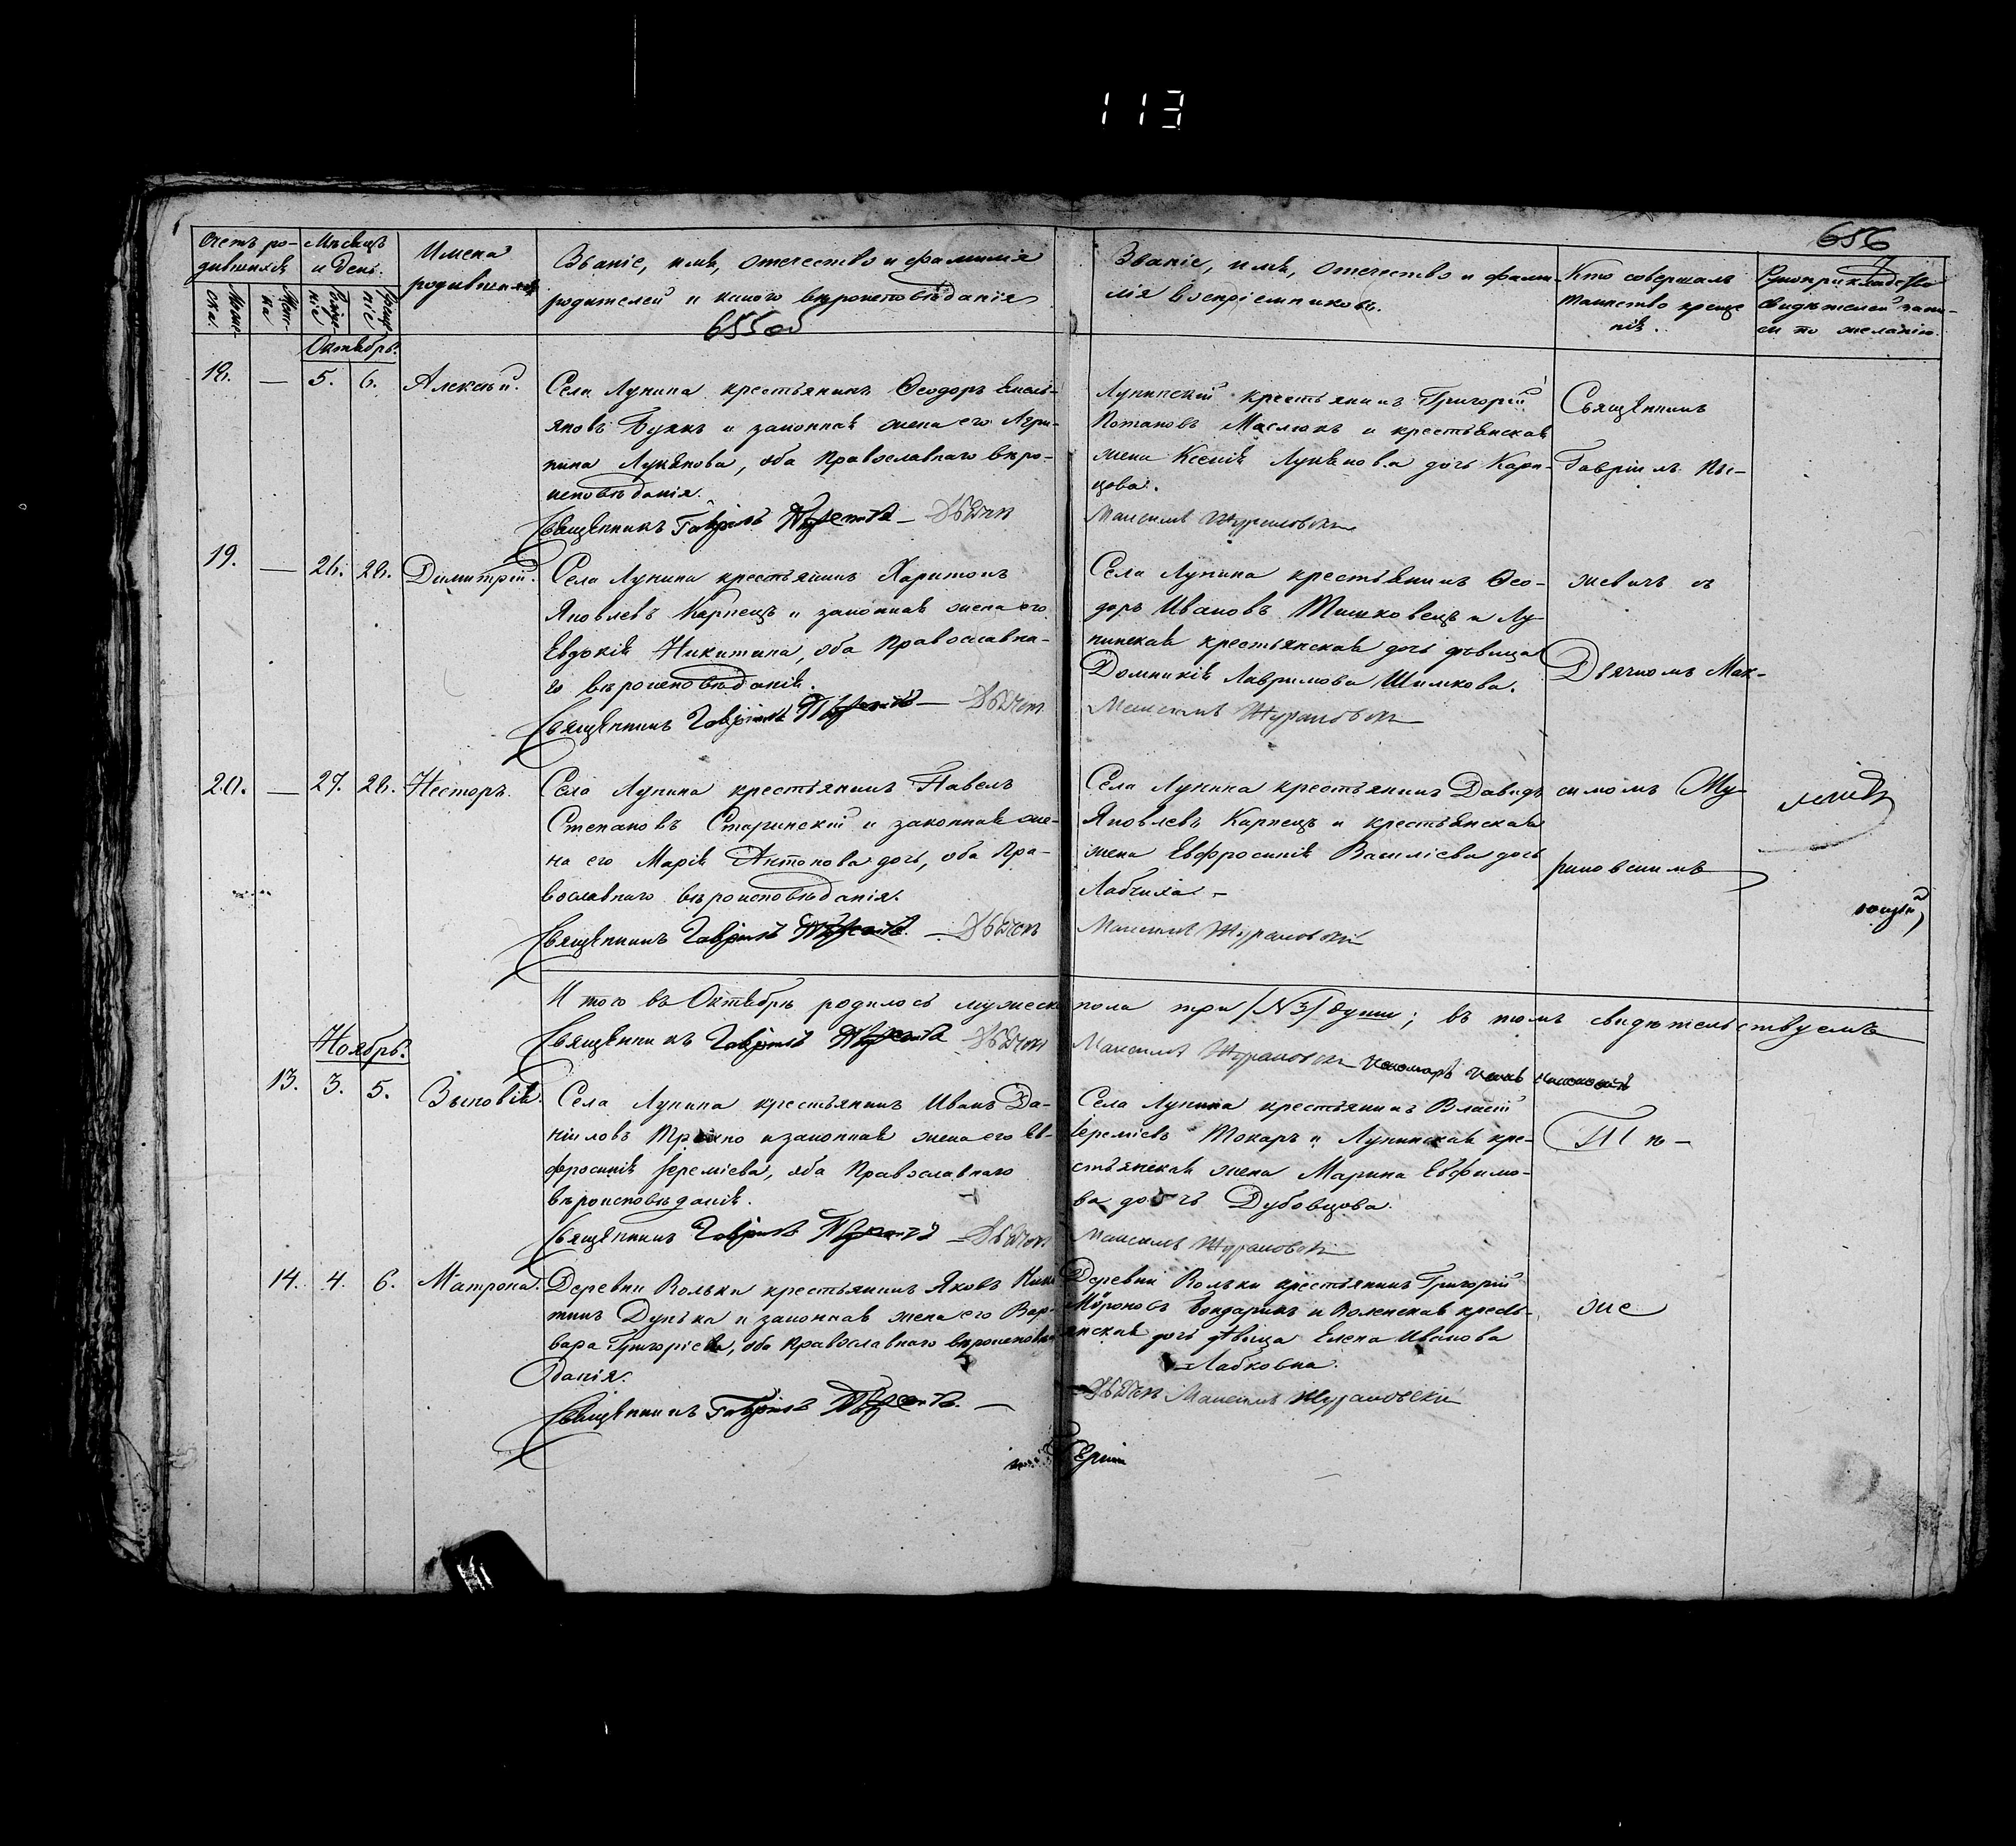 113
656
Счетъ ро-
дившихся
Мѣсяцъ
и день.
Имена
родившихся
Званіе, имя, отечество и фамилія
родителей и какого вѣроисповѣданія
655 об
Званіе, имя, отечество и фами-
лія воспріемниковъ.
Кто совершалъ
таинство креще
нія.
Рукоприкладство
свидѣтелей запи-
си по желанію.
Октябрь.
18. — 5. 6. Алексѣй.
Села Лунина крестьянинъ Ѳеодоръ Емель-
яновъ Букъ и законная жена его Агри-
пина Лукянова, оба Православнаго вѣро-
исповѣданія.
Священникъ Гавріилъ — Дьячекъ
Лунинскій крестьянинъ Григорій
Потаповъ Маслюкъ и крестьянская
жена Ксенія Лукянова дочь Карп-
цова.
Максимъ Жураковскій
Священникъ
Гавріилъ
19. — 26. 28. Димитрій.
Села Лунина крестьянинъ Харитонъ
Яковлевъ Карпецъ и законная жена его
Евдокія Никитина, оба Православна-
го вѣроисповѣданія.
Священникъ Гавріилъ — Дьячекъ
Села Лунина крестьянинъ Ѳео-
доръ Ивановъ Тишковецъ и Лу-
нинская крестьянская дочь дѣвица
Домникія Лавринова Шимкова.
Максимъ Жураковскій
жевичъ съ
Дьячкомъ Мак-
20. — 27. 28. Несторъ.
Села Лунина крестьянинъ Павелъ
Степановъ Старинскій и законная же-
на его Марія Антонова дочь, оба Пра-
вославнаго вѣроисповѣданія.
Священникъ Гавріилъ — Дьячекъ
Села Лунина крестьянинъ Давидъ
Яковлевъ Карпецъ и крестьянская
жена Евфросинія Василіева дочь
Лабчиха. —
Максимъ Жураковскій
симомъ Жу-
раковскимъ
И того въ Октябрѣ родилось мужеска пола три /№ 3/ души; въ томъ свидѣтельствуемъ
Священникъ Гавріилъ Дьячекъ Максимъ Жураковскій
Ноябрь.
13. 3. 5. Зиновія.
Села Лунина крестьянинъ Иванъ Да-
ніиловъ и законная жена его Ев-
фросинія Іереміева, оба Православнаго
вѣроисповѣданія.
Священникъ Гавріилъ — Дьячекъ
Села Лунина крестьянинъ Власій
Іереміевъ Токаръ и Лунинская кре-
стьянская жена Марина Евфимо-
ва дочь Дубовцова.
Максимъ Жураковскій
Тѣ-
14. 4. 6. Матрона.
Деревни Вольки крестьянинъ Яковъ Ники
тинъ Дунька и законная жена его Вар-
вара Григоріева, оба Православнаго вѣроисповѣ
данія.
Священникъ Гавріилъ —
Деревни Вольки крестьянинъ Григорій
Мироновъ Бондарикъ и Воленская кресть-
янская дочь дѣвица Елена Иванова
Лабковна.
Дьячекъ Максимъ Жураковскій
же